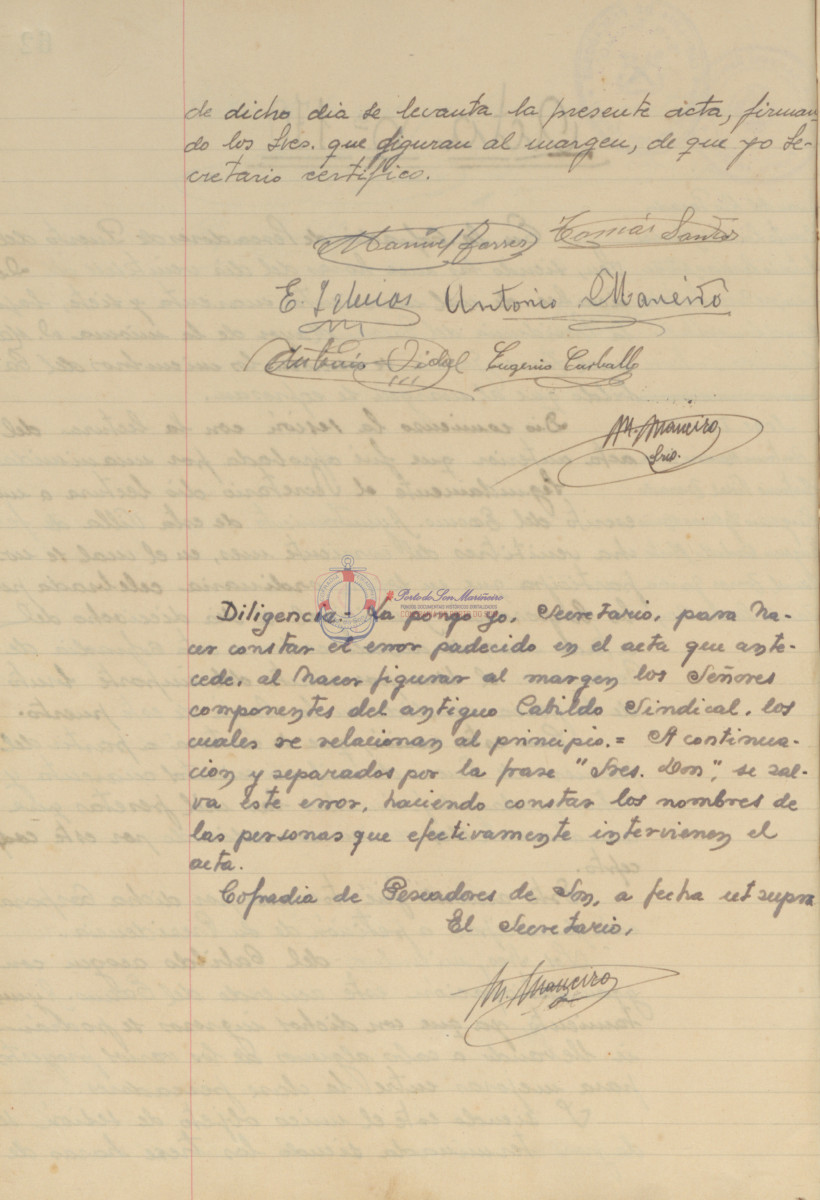 de dicho dia se levanta la presente acta, firman-
do los Sres. que figuran al margen, de que yo Se-
cretario certifico.
Manuel Ferrer Tomás Santos
E. Iglesias Antonio Maneiro
Antonio Vidal Eugenio Carballo
M. Maneiro
Srio.
Porto do Son Mariñeiro
Diligencia.- La pongo yo, Secretario, para ha-
cer constar el error padecido en el acta que ante-
cede, al hacer figurar al margen los Señores
componentes del antiguo Cabildo Sindical, los
cuales se relacionan al principio.= A continua-
cion y separados por la frase "Sres. Don", se sal-
va este error, haciendo constar los nombres de
las personas que efectivamente intervienen el
acta.
Cofradia de Pescadores de Son, a fecha ut supra
El Secretario,
M. Maneiro